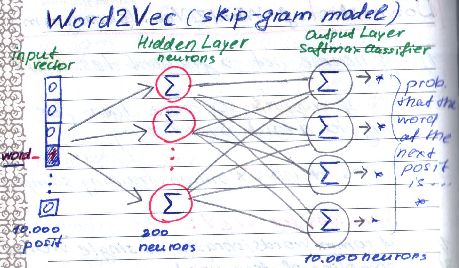 Word2Vec (skip-gram model)
input
vector
Hidden Layer
neurons
Output Layer
Softmax Classifier
0
0
0
word - 1
0
Σ
Σ
Σ
Σ
Σ
Σ
Σ
prob.
that the
word
at the
next
posit
is...
*
10.000
posit
200
neurons
10.000 neurons